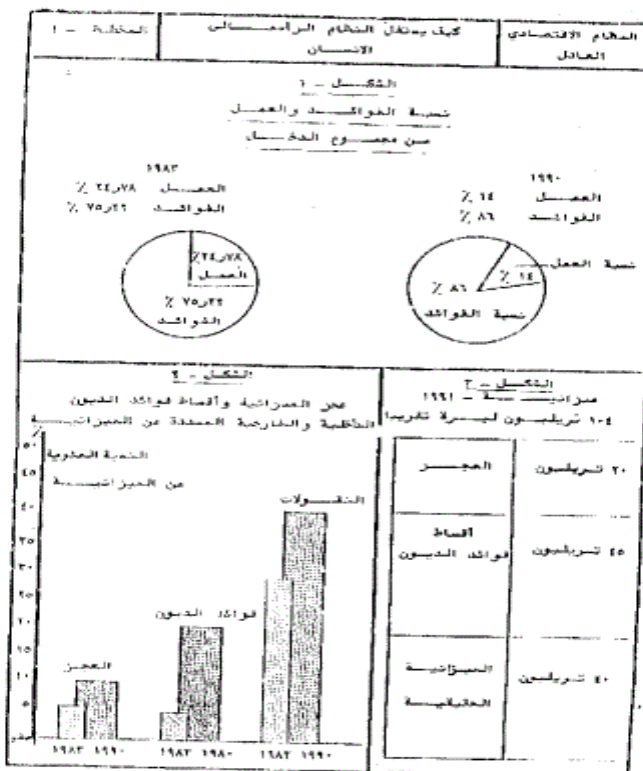 النظام الاقتصادي
العادل
كيف يستغل النظام الرأسمالي
الانسان
المخطط - ١
الشكل - ١
نسبة الفوائد والعمل
من مجموع الدخل
١٩٩٠
العمل ١٤ ٪
الفوائد ٨٦ ٪
نسبة العمل
١٤ ٪
٨٦ ٪
نسبة الفوائد
١٩٨٣
العمل ٢٤٫٧٨ ٪
الفوائد ٧٥٫٢٢ ٪
٢٤٫٧٨٪
العمل
٧٥٫٢٢ ٪
الفوائد
الشكل - ٣
ميزانية - ١٩٩١
١٠٤ تريليون ليرة تقريبا
٢٠ تريليون
العجز
٤٥ تريليون
أقساط
فوائد الديون
٤٠ تريليون
الميزانية
الحقيقية
الشكل - ٢
عجز الميزانية وأقساط فوائد الديون
الداخلية والخارجية المسددة من الميزانية
٪
النسبة المئوية
من الميزانية
٥٠
٤٥
٤٠
٣٥
٣٠
٢٥
٢٠
١٥
١٠
٥
صفر
العجز
فوائد الديون
١٩٨٣ ١٩٩٠
١٩٨٣ ١٩٨٠
١٩٨٣ ١٩٩٠